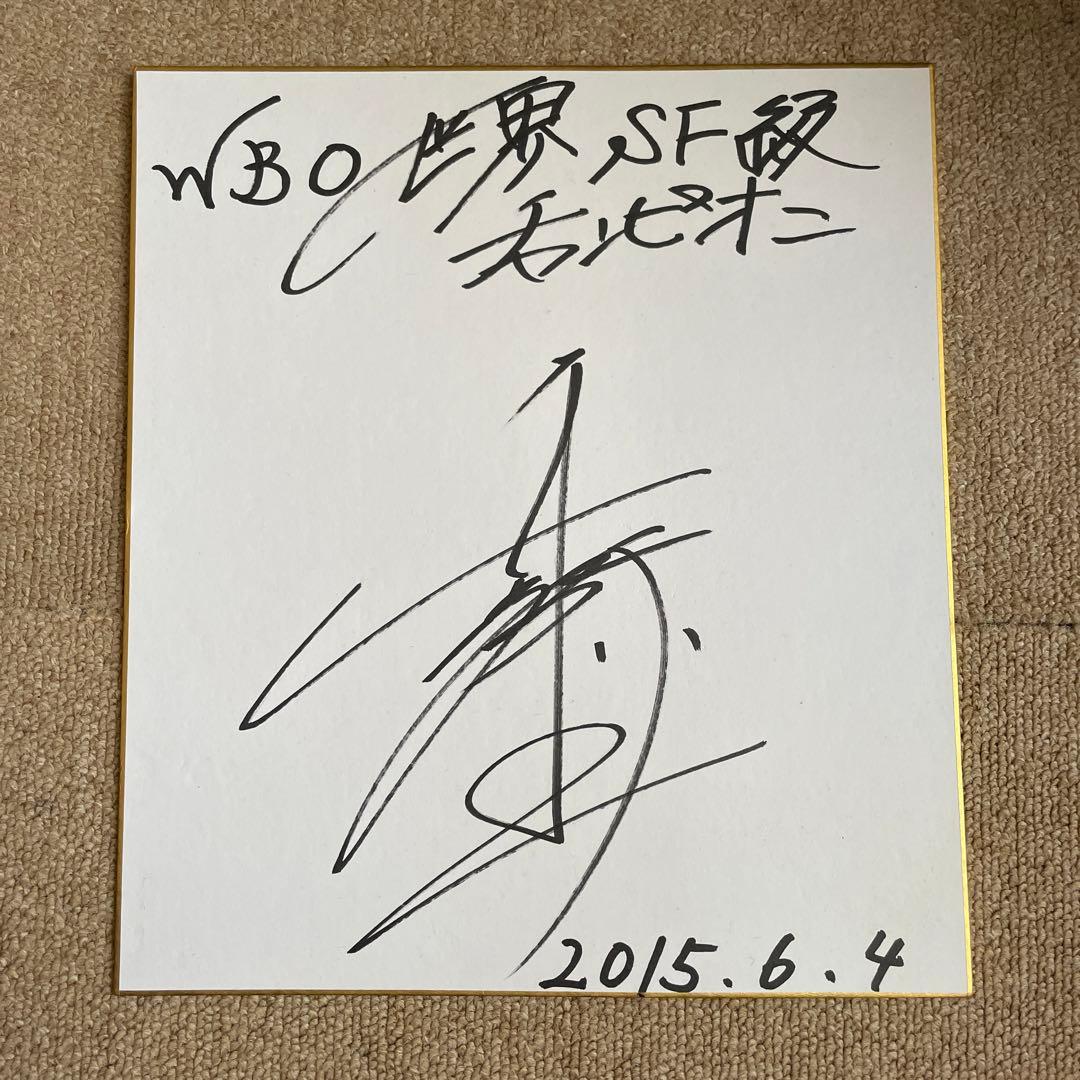 WBO世界SF級
チャンピオン
2015.6.4